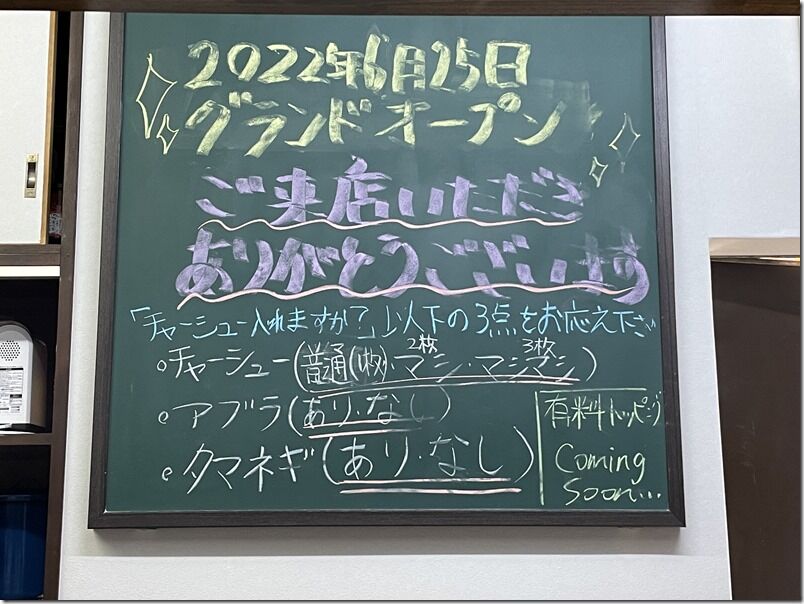 2022年6月25日
グランドオープン
ご来店いただき
ありがとうございます
「チャーシュー入れますか?」以下の3点をお応え下さ
○チャーシュー(普通(1枚)・マシ・マシマシ)
2枚 3枚
○アブラ(あり・なし)
○タマネギ(あり・なし)
有料トッピング
Coming
Soon...